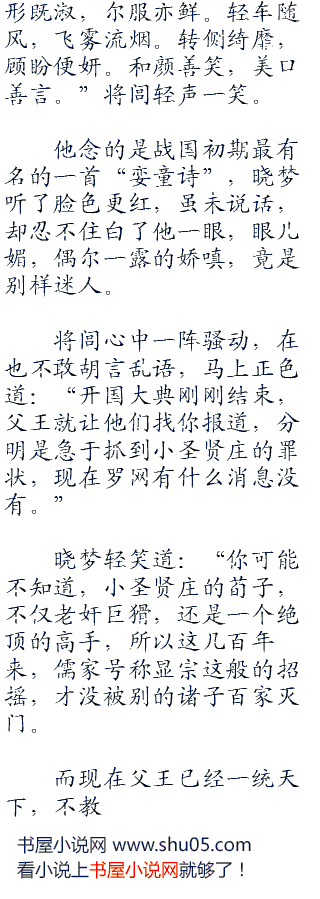 形既淑，尔服亦鲜。轻车随
风，飞雾流烟。转侧绮靡，
顾盼便妍。和颜善笑，美口
善言。”将闾轻声一笑。
他念的是战国初期最有
名的一首“娈童诗”，晓梦
听了脸色更红，虽未说话，
却忍不住白了他一眼，眼儿
媚，偶尔一露的娇嗔，竟是
别样迷人。
将闾心中一阵骚动，在
也不敢胡言乱语，马上正色
道：“开国大典刚刚结束，
父王就让他们找你报道，分
明是急于抓到小圣贤庄的罪
状，现在罗网有什么消息没
有。”
晓梦轻笑道：“你可能
不知道，小圣贤庄的荀子，
不仅老奸巨猾，还是一个绝
顶的高手，所以这几百年
来，儒家号称显宗这般的招
摇，才没被别的诸子百家灭
门。
而现在父王已经一统天
下，不教
书屋小说网 www.shu05.com
看小说上书屋小说网就够了！